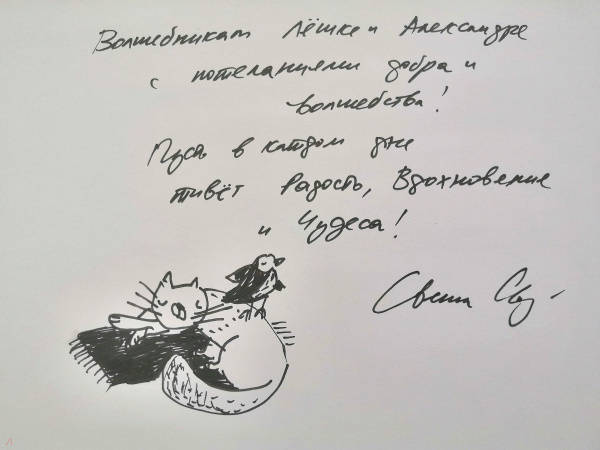 Волшебникам Лёшке и Александре
с пожеланиями добра и
волшебства!
Пусть в каждом дне
живёт Радость, Вдохновение
и Чудеса!
Света